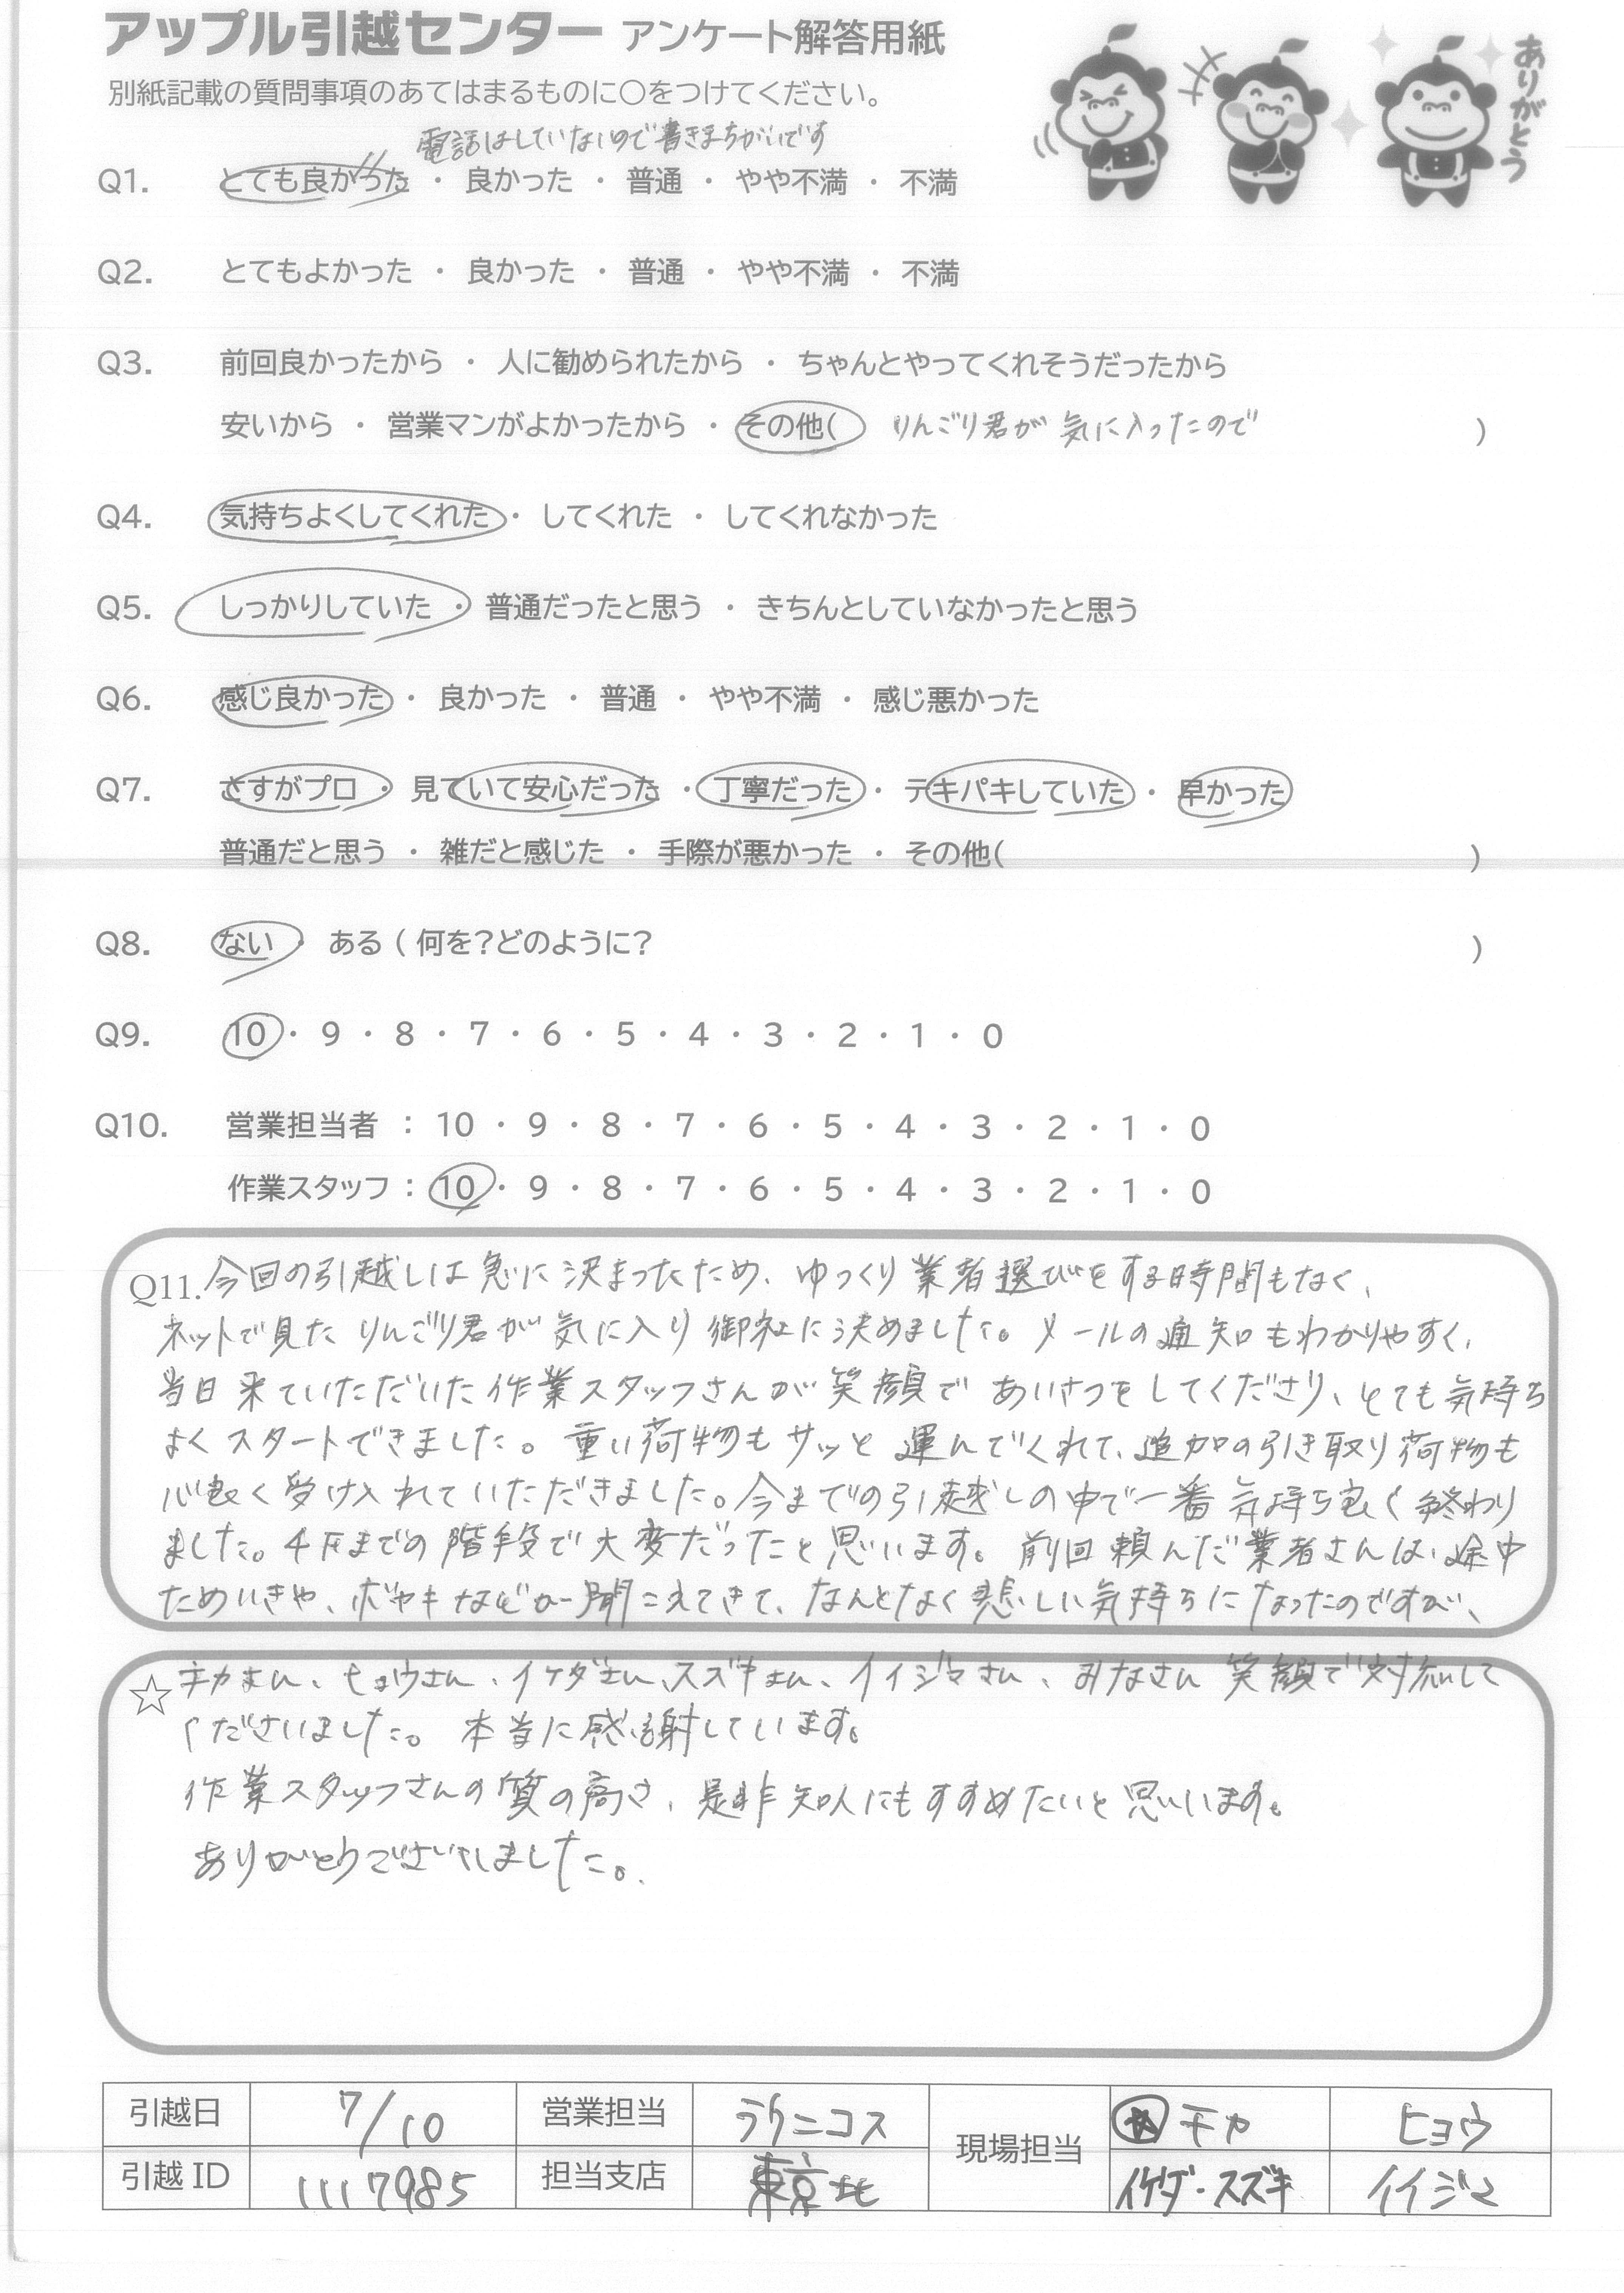 アップル引越センター アンケート解答用紙
ありがとう
別紙記載の質問事項のあてはまるものに○をつけてください。
電話はしていないので書きまちがいです
Q1. とても良かった ・ 良かった ・ 普通 ・ やや不満 ・ 不満
Q2. とてもよかった ・ 良かった ・ 普通 ・ やや不満 ・ 不満
Q3. 前回良かったから ・ 人に勧められたから ・ ちゃんとやってくれそうだったから
安いから ・ 営業マンがよかったから ・ その他( りんごり君が気に入ったので )
Q4. 気持ちよくしてくれた ・ してくれた ・ してくれなかった
Q5. しっかりしていた ・ 普通だったと思う ・ きちんとしていなかったと思う
Q6. 感じ良かった ・ 良かった ・ 普通 ・ やや不満 ・ 感じ悪かった
Q7. さすがプロ ・ 見ていて安心だった ・ 丁寧だった ・ テキパキしていた ・ 早かった
普通だと思う ・ 雑だと感じた ・ 手際が悪かった ・ その他( )
Q8. ない ・ ある ( 何を?どのように? )
Q9. 10 ・ 9 ・ 8 ・ 7 ・ 6 ・ 5 ・ 4 ・ 3 ・ 2 ・ 1 ・ 0
Q10. 営業担当者 : 10 ・ 9 ・ 8 ・ 7 ・ 6 ・ 5 ・ 4 ・ 3 ・ 2 ・ 1 ・ 0
作業スタッフ : 10 ・ 9 ・ 8 ・ 7 ・ 6 ・ 5 ・ 4 ・ 3 ・ 2 ・ 1 ・ 0
Q11. 今回の引越しは急に決まったため、ゆっくり業者選びをする時間もなく、
ネットで見たりんごり君が気に入り御社に決めました。メールの通知もわかりやすく、
当日来ていただいた作業スタッフさんが笑顔であいさつをしてくださり、とても気持ち
よくスタートできました。重い荷物もサッと運んでくれて、追加の引き取り荷物も
心良く受け入れていただきました。今までの引越しの中で一番気持ち良く終わり
ました。4Fまでの階段で大変だったと思います。前回頼んだ業者さんは、途中
ためいきや、ボヤキなどが聞こえてきて、なんとなく悲しい気持ちになったのですが、
☆ チカさん、ヒョウさん、イケダさん、スズキさん、イイジマさん、みなさん笑顔で対応して
くださいました。本当に感謝しています。
作業スタッフさんの質の高さ、是非知人にもすすめたいと思います。
ありがとうございました。
引越日 7/10 営業担当 ラクニコス 現場担当 チカ ヒョウ
引越ID 1117985 担当支店 東京北 イケダ・スズキ イイジマ